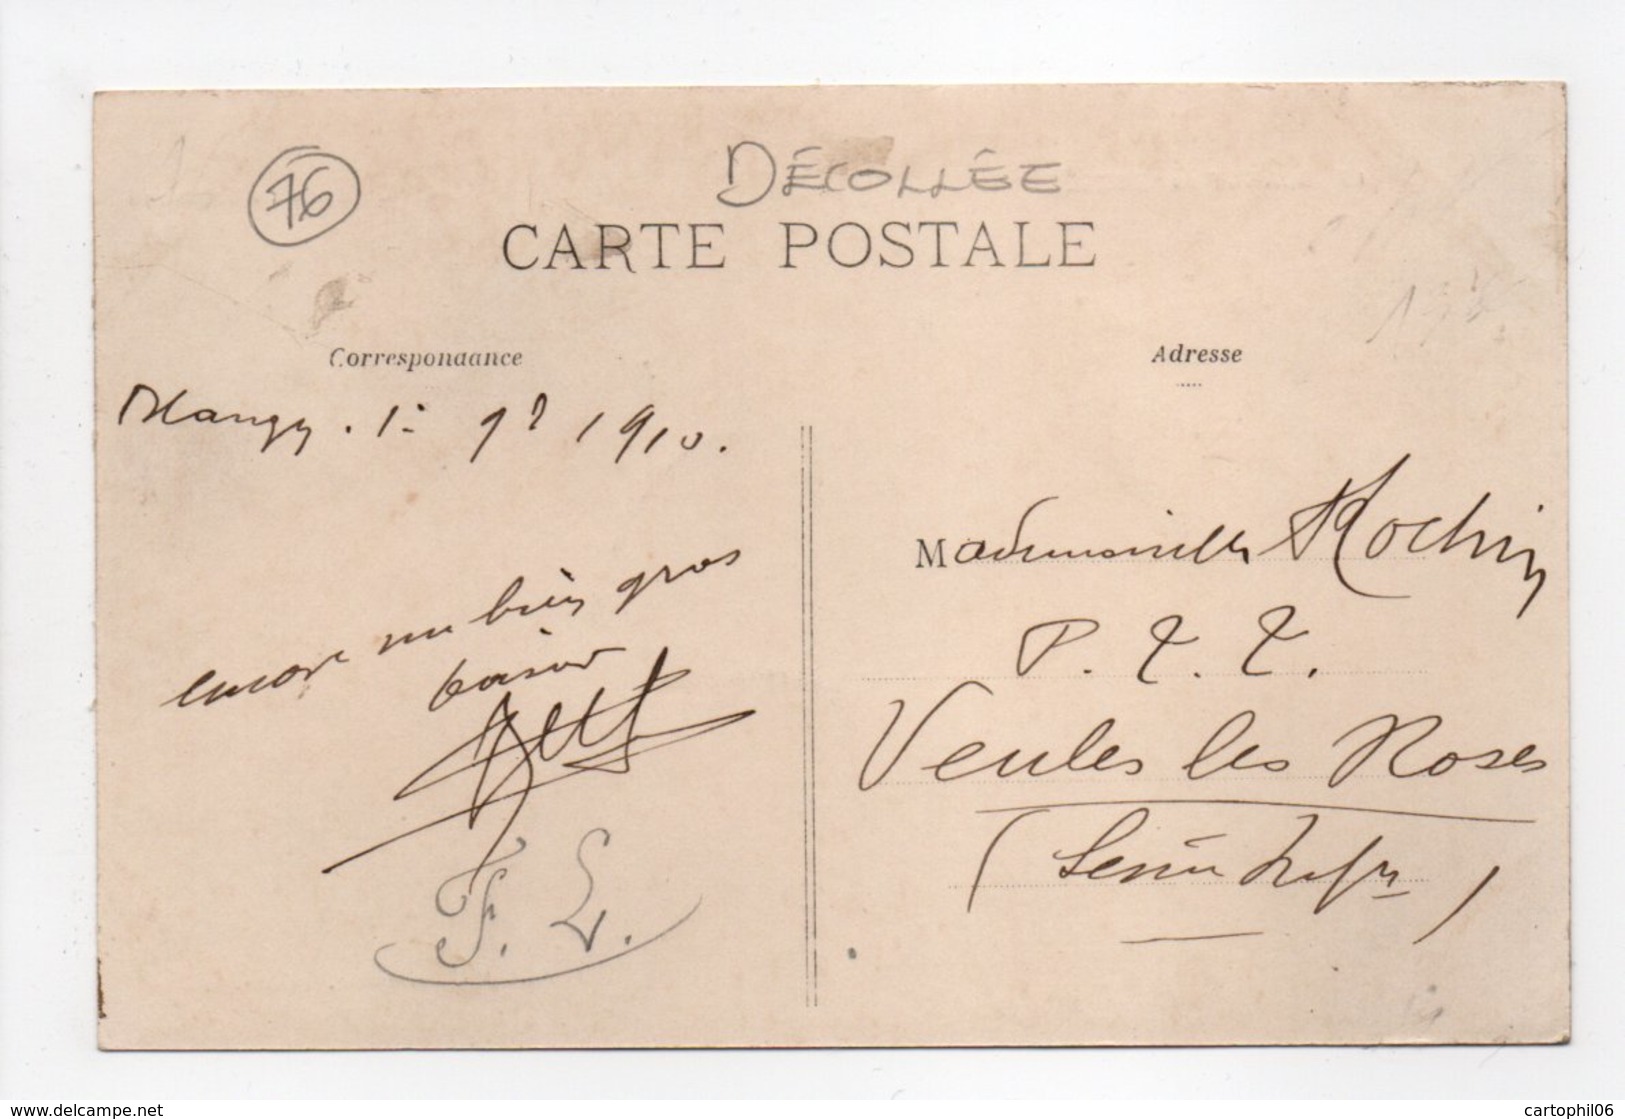 76
DÉCOLLÉE
CARTE POSTALE
Correspondance
Blangy. 1er 9bre 1910.
encore un bien gros
baiser
F. L.
Adresse
Mademoiselle Rochin
P. T. T.
Veules les Roses
(Seine Infre)
www.delcampe.net
cartophil06